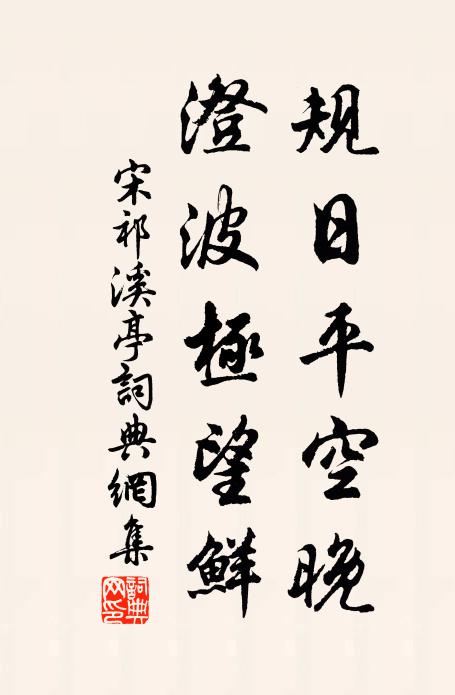 規日平空晚
澄波極望鮮
宋祁溪亭詞典網集
詞典網印